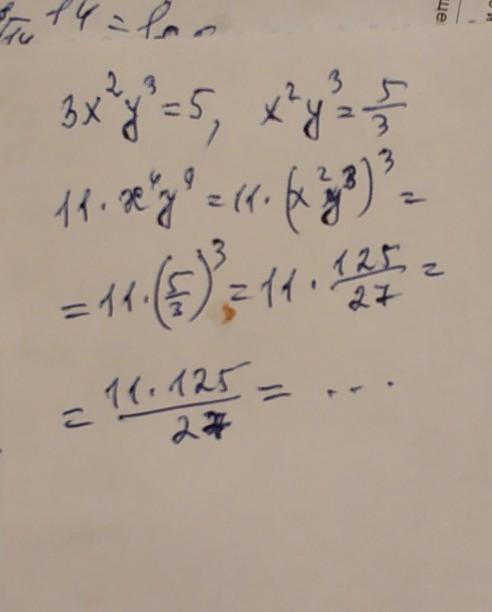 14 = 
3x²y³ = 5, x²y³ = 5/3
11 · x⁶y⁹ = 11 · (x²y³)³ =
= 11 · (5/3)³ = 11 · 125/27 =
= 11 · 125/27 = ...